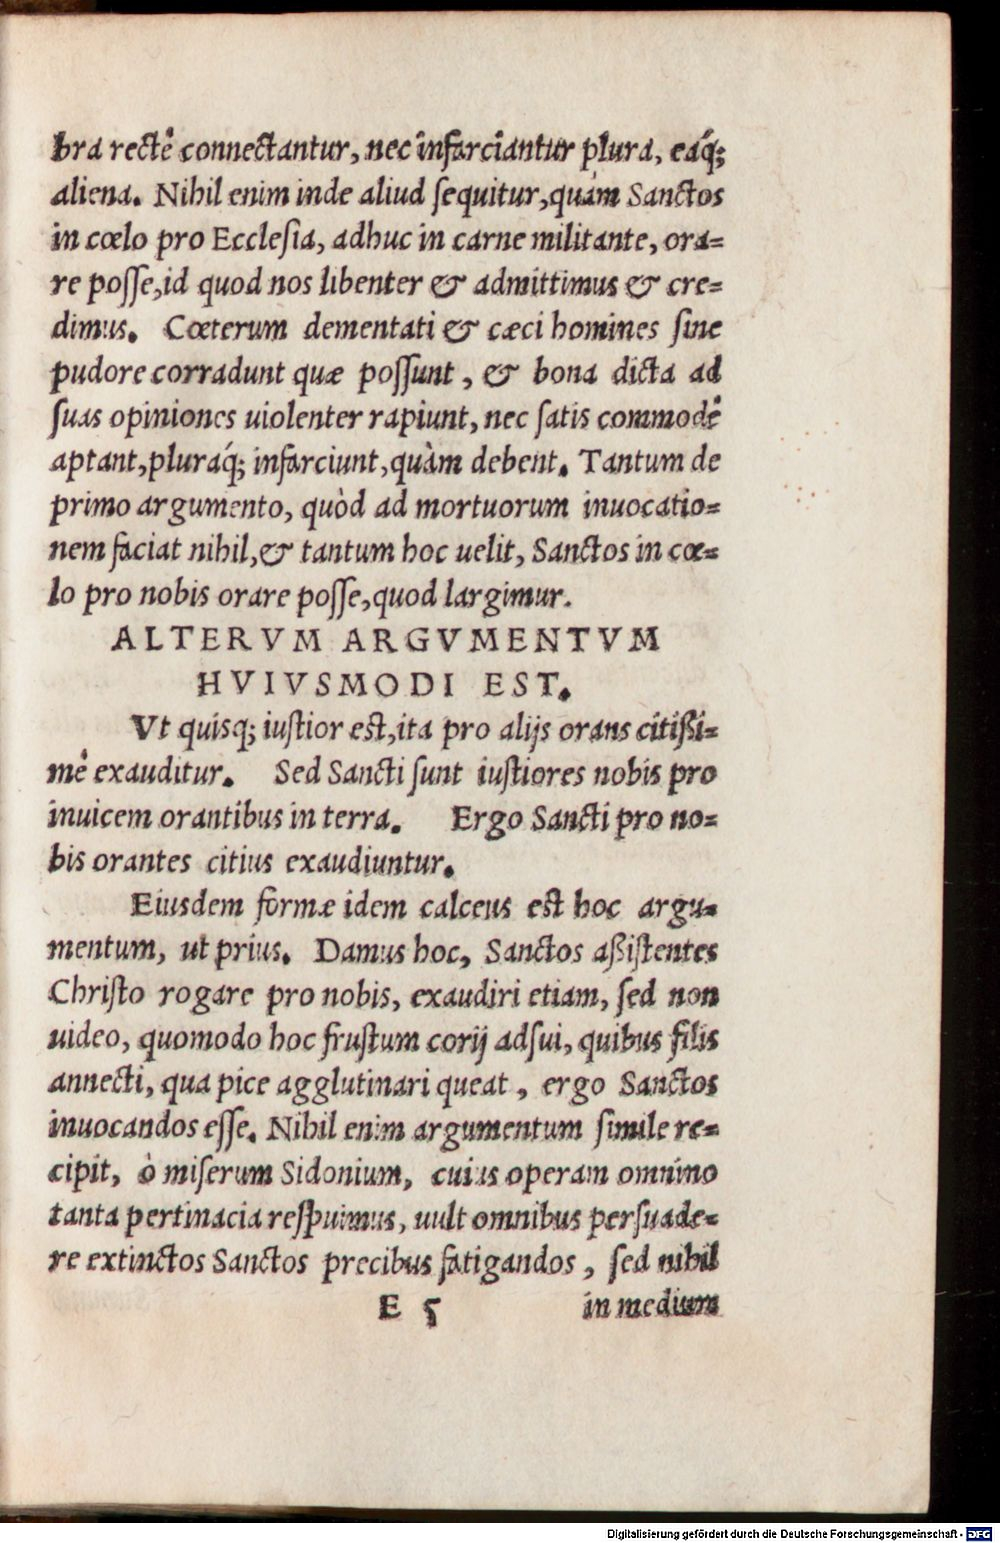 bra rectè connectantur, nec infarciantur plura, eáq;
aliena. Nihil enim inde aliud sequitur, quàm Sanctos
in cœlo pro Ecclesia, adhuc in carne militante, ora=
re posse, id quod nos libenter & admittimus & cre=
dimus. Cœterum dementati & cæci homines sine
pudore corradunt quæ possunt, & bona dicta ad
suas opiniones uiolenter rapiunt, nec satis commodè
aptant, pluraq́; infarciunt, quàm debent. Tantum de
primo argumento, quòd ad mortuorum inuocatio=
nem faciat nihil, & tantum hoc uelit, Sanctos in cœ=
lo pro nobis orare posse, quod largimur.
ALTERVM ARGVMENTVM
HVIVSMODI EST.
Vt quisq; iustior est, ita pro alijs orans citißi=
mè exauditur. Sed Sancti sunt iustiores nobis pro
inuicem orantibus in terra. Ergo Sancti pro no=
bis orantes citius exaudiuntur.
Eiusdem formæ idem calceus est hoc argu=
mentum, ut prius. Damus hoc, Sanctos aßistentes
Christo rogare pro nobis, exaudiri etiam, sed non
uideo, quomodo hoc frustum corij adsui, quibus filis
annecti, qua pice agglutinari queat, ergo Sanctos
inuocandos esse. Nihil enim argumentum simile re=
cipit, ò miserum Sidonium, cuius operam omnino
tanta pertinacia respuimus, uult omnibus persuade=
re extinctos Sanctos precibus fatigandos, sed nihil
E 5 in medium
Digitalisierung gefördert durch die Deutsche Forschungsgemeinschaft - DFG